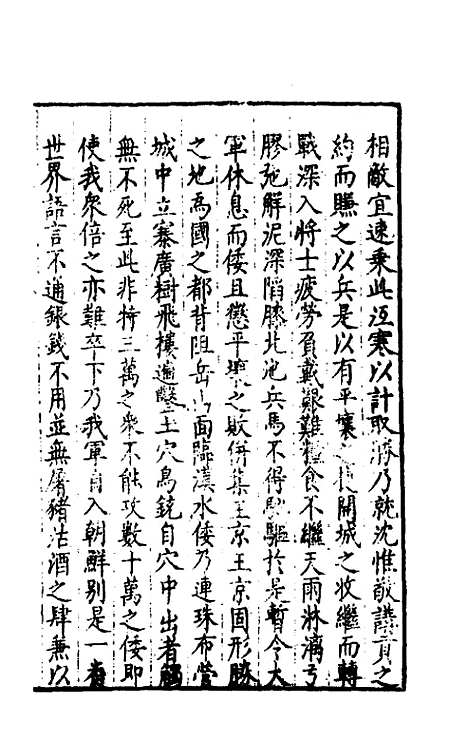 相敵宜速乘此沍寒以計取勝乃就沈惟敬講貢之
約而賺之以兵是以有平壤之捷開城之收繼而轉
戰深入將士疲勞負戴艱難糧食不繼天雨淋漓弓
膠弛解泥深陷膝北地兵馬不得馳驅於是暫令大
軍休息而倭且懲平壤之敗併集王京王京固形勝
之地為國之都背阻岳山面臨漢水倭乃連珠布營
城中立寨廣樹飛樓遍鑿土穴鳥銃自穴中出者觸
無不死至此非特三萬之衆不能攻數十萬之倭即
使我衆倍之亦難卒下乃我軍自入朝鮮別是一
世界語言不通銀錢不用並無屠豬沽酒之肆兼以